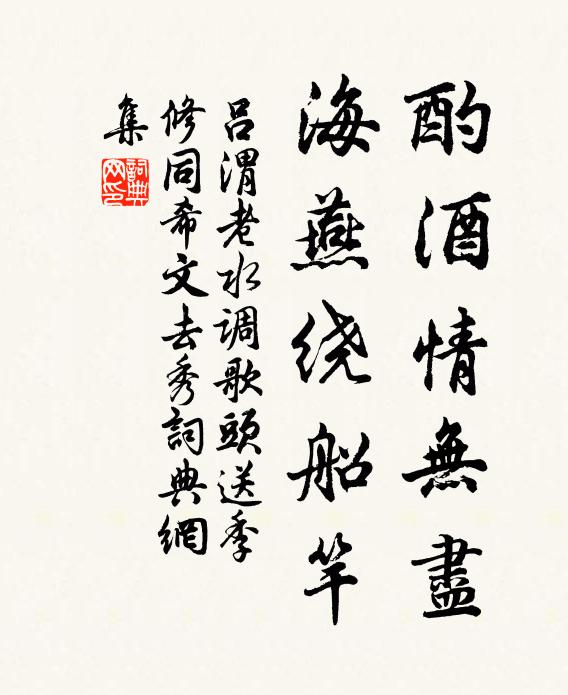 酌酒情無盡
海燕绕船竿
吕渭老水调歌頭送季
修同希文去秀詞典網
集
詞典
网印